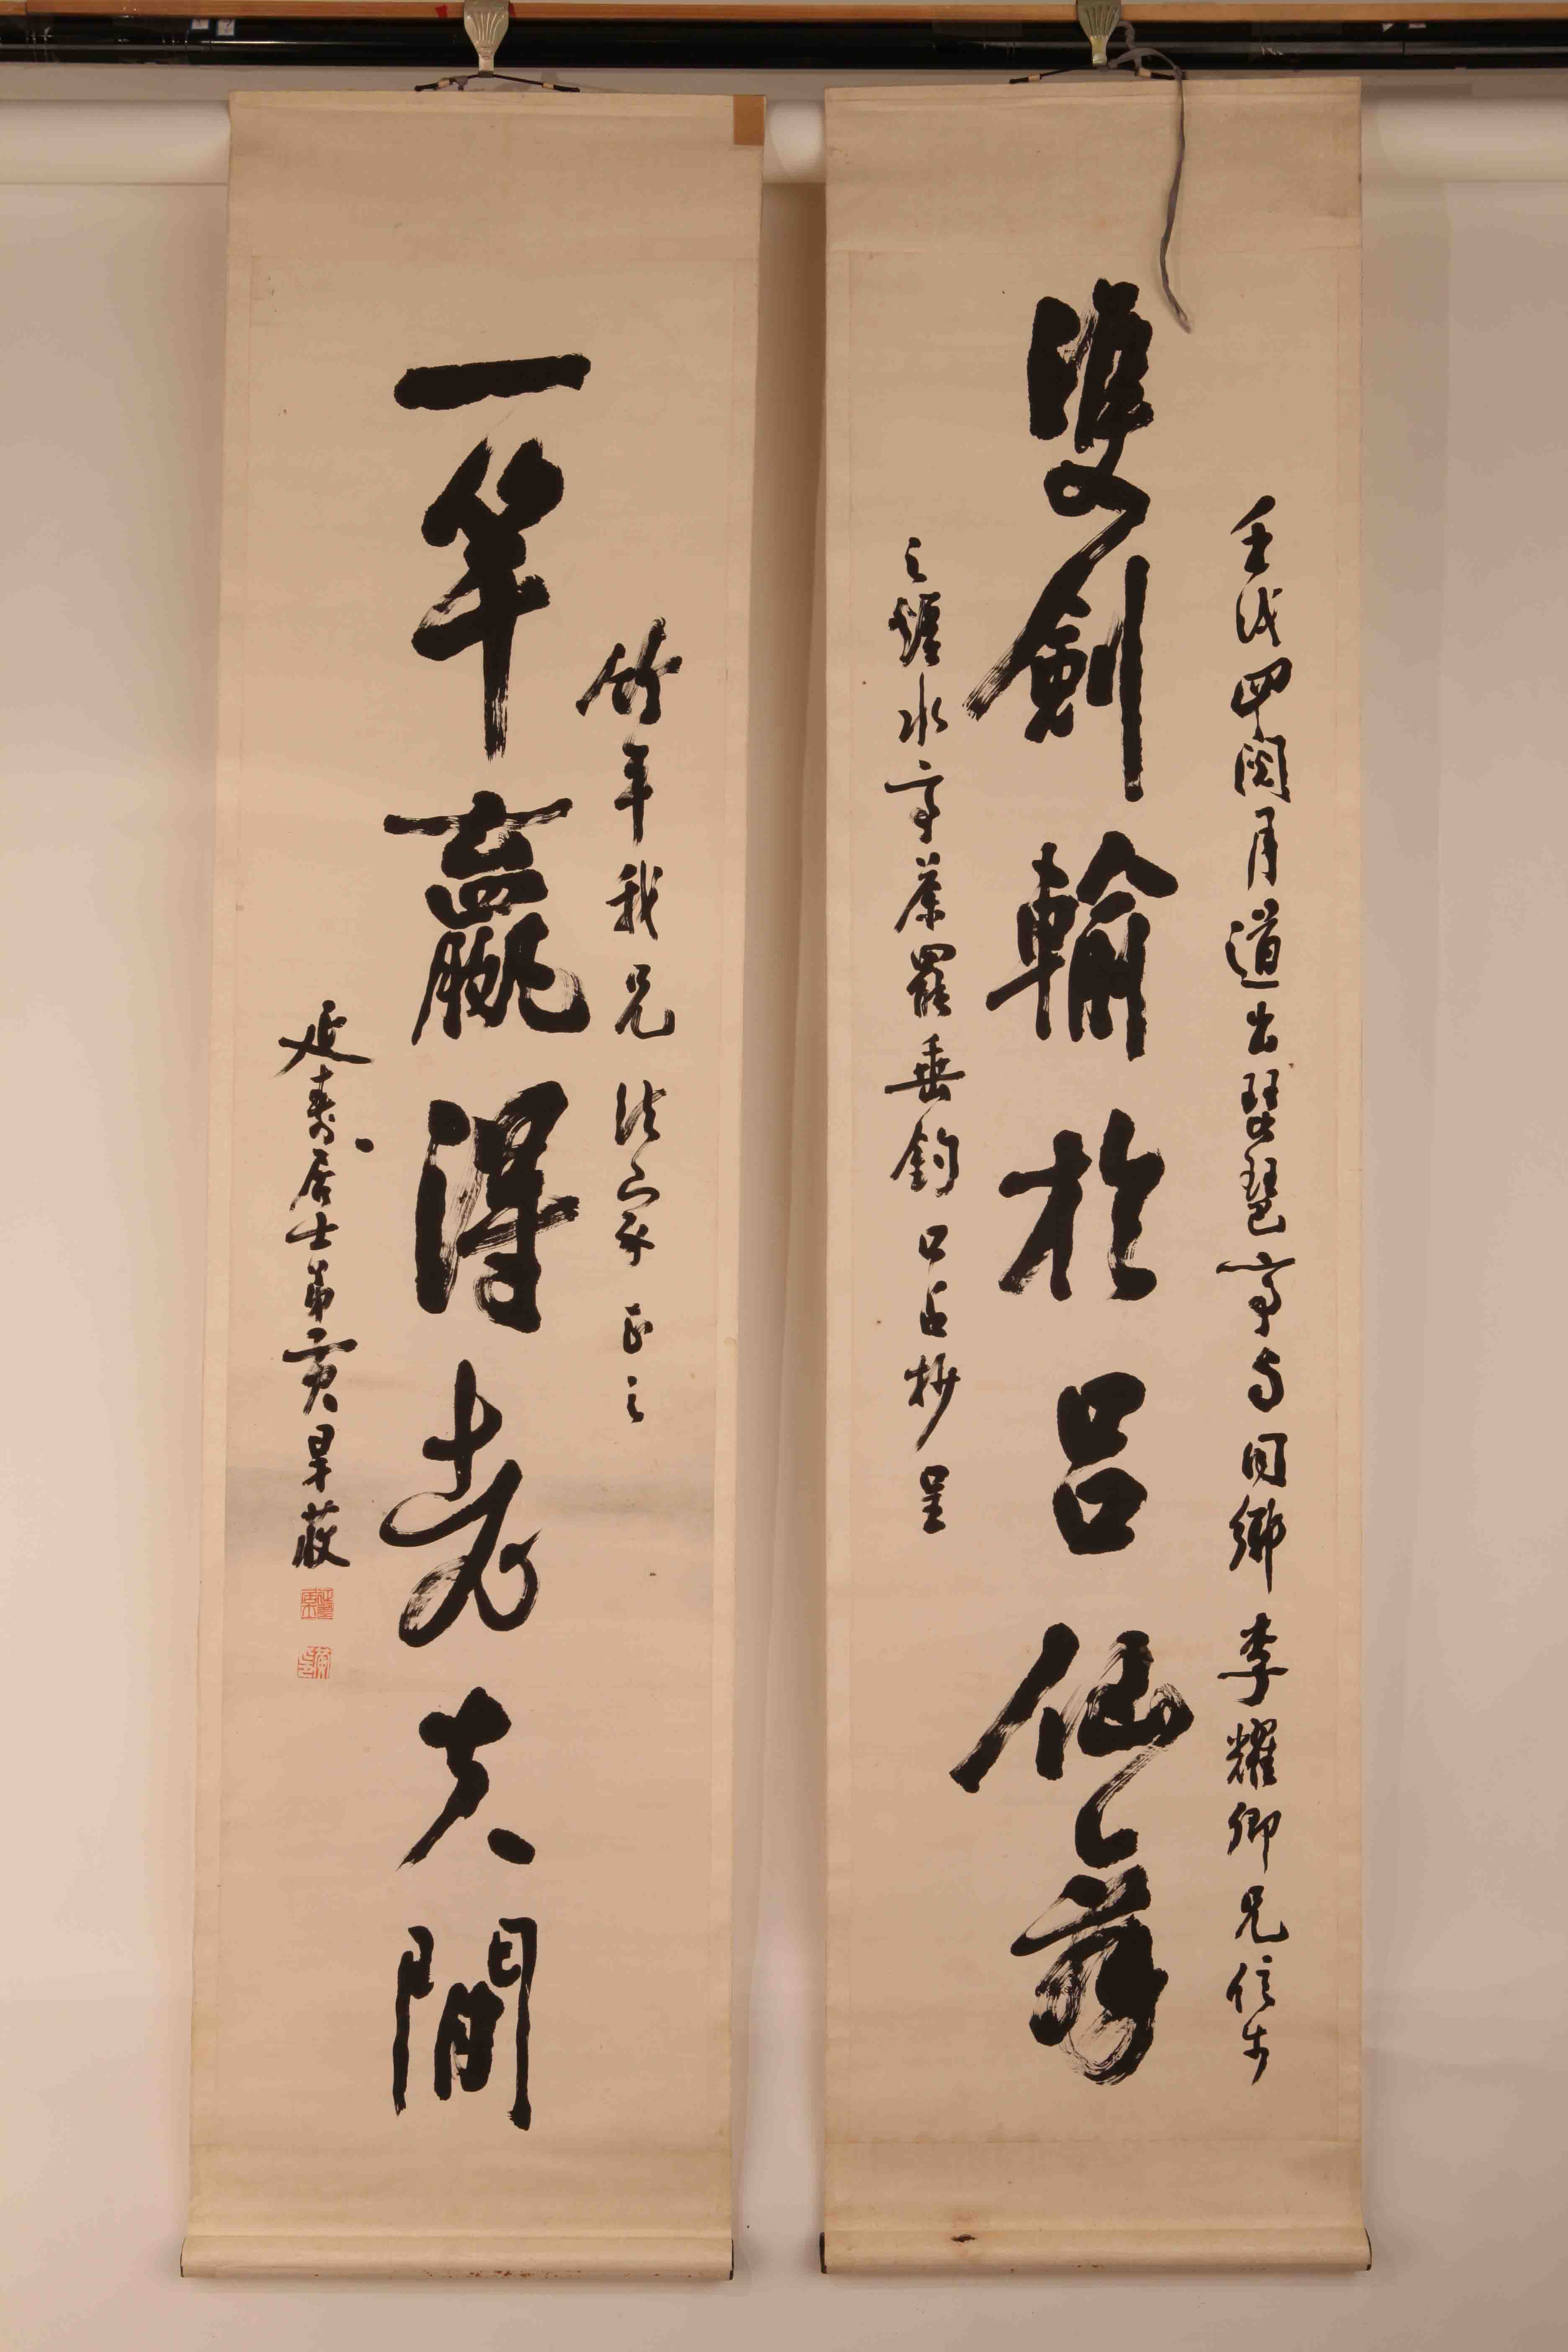 壬戌四閏月道出琵琶亭与同鄉李耀卿兄信步
雙劍輸於呂仙舞
之煙水亭茶罷垂釣口占抄呈
竹年我兄法家正之
一竿贏得老夫間
延壽居士弟黃